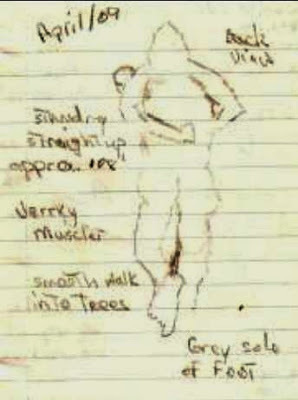 April/09
Back
View
standing
straight up
approx.
Verrky
muscler
smooth walk
into Trees
Grey sole
of Foot